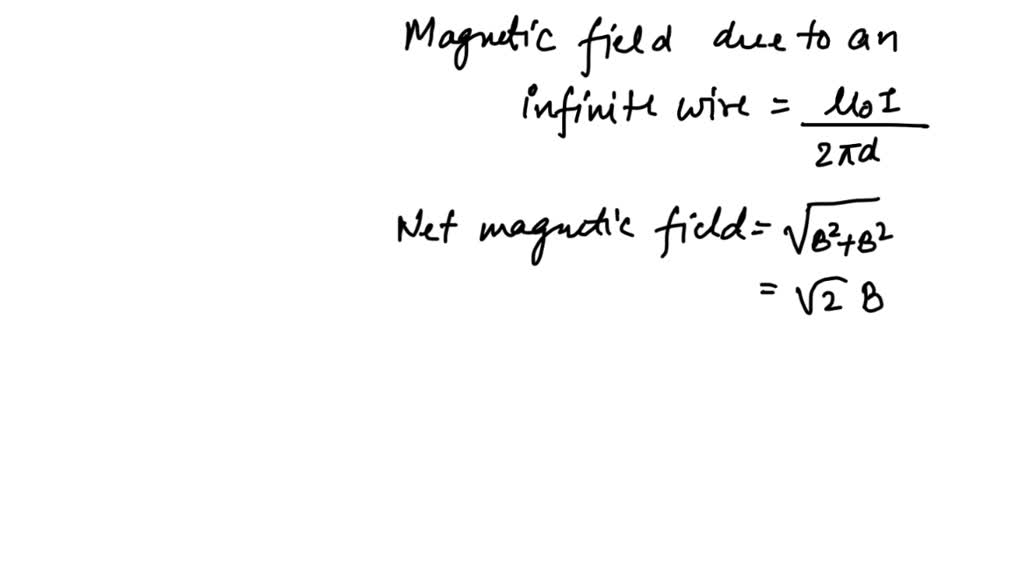 Magnetic field due to an
infinite wire = μ₀I / 2πd
Net magnetic field = √B²+B²
= √2 B